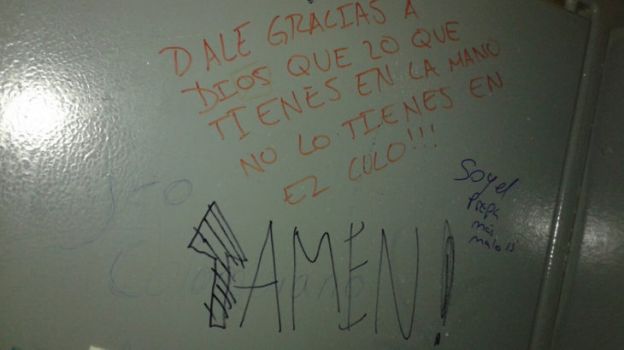 DALE GRACIAS A
DIOS QUE LO QUE
TIENES EN LA MANO
NO LO TIENES EN
EL CULO!!!
Soy el
Prepa
más
malo!!
AMEN!